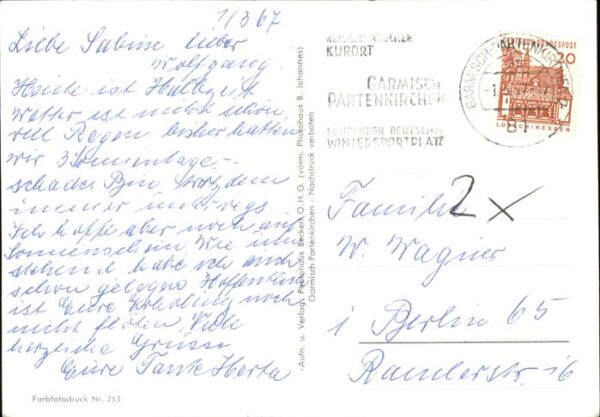 1/3 67
Liebe Sabine lieber
Wolfgang.
Heute ist Halbzeit
Wetter ist nicht schön
viel Regen bisher hatten
wir 3 Sonnentage. -
schade. Bin trotzdem
immer unterwegs.
Ich hoffe aber noch auf
Sonnenschein. Wie
habe ich auch
schon gelogen. Hoffentlich
ist Eure Erholung noch
nicht flöten. Viele
herzliche Grüsse
Eure Tante Herta
Farbfotodruck Nr. 253
Aufn. u. Verlag: Photohaus Beckert O.H.G. (vorm. Photohaus B. Johannes)
Garmisch-Partenkirchen - Nachdruck verboten
KURORT
GARMISCH
PARTENKIRCHEN
FÜHRENDER DEUTSCHER
WINTERSPORTPLATZ
GARMISCH-PARTENKIRCHEN
DEUTSCHE BUNDESPOST
20
LORSCH/HESSEN
Familie
2 x
W. Wagner
1 Berlin 65
Ramlerstr. 16